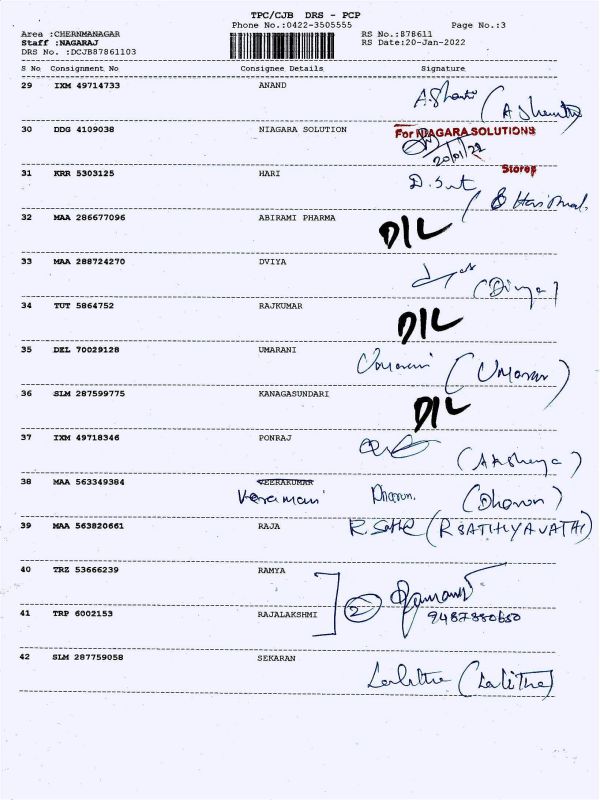 TPC/CJB DRS - PCP
Phone No.:0422-3505555 Page No.:3
Area :CHERNMANAGAR RS No.:878611
Staff :NAGARAJ RS Date:20-Jan-2022
DRS No. :DCJB87861103
S No Consignment No Consignee Details Signature
29 IXM 49714733 ANAND
30 DDG 4109038 NIAGARA SOLUTION For NIAGARA SOLUTIONS
20/01/22
Stores
31 KRR 5303125 HARI
32 MAA 286677096 ABIRAMI PHARMA D/L
33 MAA 288724270 DVIYA
(Divya)
34 TUT 5864752 RAJKUMAR D/L
35 DEL 70029128 UMARANI Umarani
36 SLM 287599775 KANAGASUNDARI D/L
37 IXM 49718346 PONRAJ
(Akshaya)
38 MAA 563349384 VEERAKUMAR
Veeramani Dharun. (Dharun)
39 MAA 563820661 RAJA (R SATHIYAVATHI)
40 TRZ 53666239 RAMYA
2
41 TRP 6002153 RAJALAKSHMI 9487880650
42 SLM 287759058 SEKARAN
Lalitha (Lalitha)